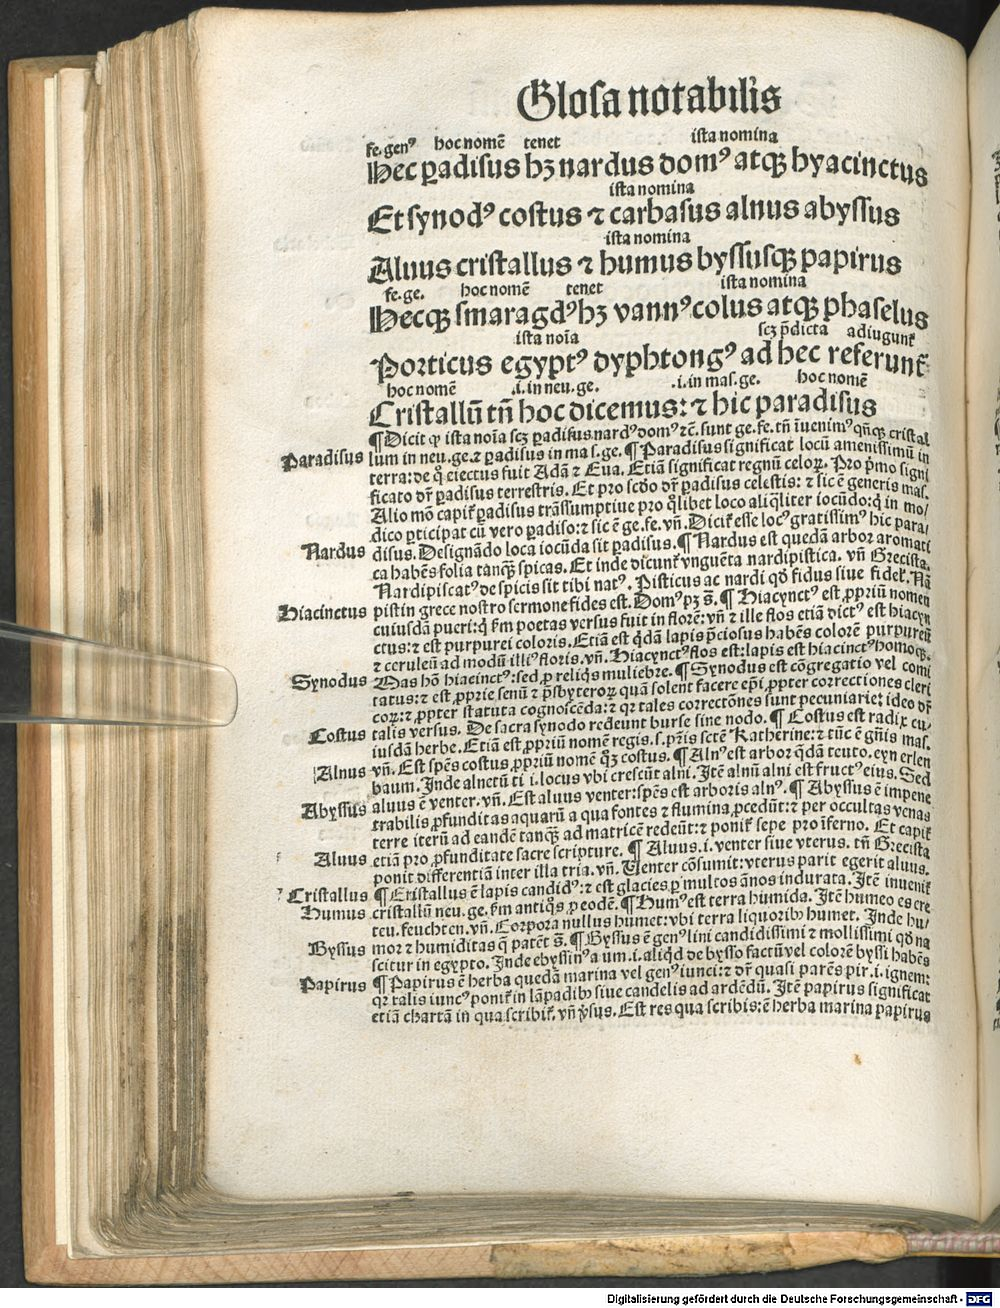 Glosa notabilis
fe. genꝰ hoc nomē tenet ista nomina
Hec ꝑadisus hꝫ nardus domꝰ atqꝫ hyacinctus
ista nomina
Et synodꝰ costus ⁊ carbasus alnus abyssus
ista nomina
Aluus cristallus ⁊ humus byssusqꝫ papirus
fe. ge. hoc nomē tenet ista nomina
Hecqꝫ smaragdꝰ hꝫ vannꝰ colus atqꝫ phaselus
ista noīa scꝫ p̄dicta adiugunt̄
Porticus egyptꝰ dyphtongꝰ ad hec referunt̄
hoc nomē .i. in neu. ge. .i. in mas. ge. hoc nomē
Cristallū tn̄ hoc dicemus: ⁊ hic paradisus
¶ Dicit ꝙ ista noīa scꝫ ꝑadisus. nardꝰ domꝰ ⁊c̄. sunt ge. fe. tn̄ īuenimꝰ qn̄qꝫ cristal
Paradisus lum in neu. ge. ⁊ ꝑadisus in mas. ge. ¶ Paradisus significat locū amenissimū in
terra: de q̊ eiectus fuit Adā ⁊ Eua. Etiā significat regnū celoꝝ. Pro p̄mo signi
ficato dr̄ ꝑadisus terrestris. Et pro scd̄o dr̄ ꝑadisus celestis: ⁊ sic ē generis mas.
Alio mō capit̄ ꝑadisus trāssumptiue pro q̊libet loco aliq̄liter iocūdo: q̄ in mo/
dico ꝑticipat cū vero ꝑadiso: ⁊ sic ē ge. fe. vn̄. Dicit̄ esse locꝰ gratissimꝰ hic para/
Nardus disus. Designādo loca iocūda sit ꝑadisus. ¶ Nardus est quedā arbor aromati
ca habēs folia tanqꝫ spicas. Et inde dicunt̄ vnguēta nardipistica. vn̄ Grecista.
Nardipiscatꝰ de spicis sit tibi natꝰ. Pisticus ac nardi qd̄ fidus siue fidel̄. Nā
Hiacinctus pistin grece nostro sermone fides est. Domꝰ pꝫ s̄. ¶ Hiacynctꝰ est ꝓpriū nomen
cuiusdā pueri: q̄ fm̄ poetas versus fuit in florē: vn̄ ⁊ ille flos etiā dictꝰ est hiacyn
ctus: ⁊ est purpurei coloris. Etiā est q̄dā lapis p̄ciosus habēs colorē purpureū
⁊ ceruleū ad modū illiꝰ floris. vn̄. Hiacynctꝰ flos est: lapis est hiacinctꝰ homoqꝫ.
Synodus Mas hōn hiacinctꝰ: sed ꝓ reliq̄s muliebre. ¶ Synodus est cōgregatio vel comi
tatus: ⁊ est ꝓprie senū ⁊ p̄sbyteroꝝ quā solent facere ep̄i ꝓpter correctiones cleri
coꝝ: ⁊ ꝓpter statuta cognoscēda: ⁊ qꝛ tales correctōnes sunt pecuniarie: ideo dr̄
Costus talis versus. De sacra synodo redeunt burse sine nodo. ¶ Costus est radix cu/
iusdā herbe. Etiā est ꝓpriū nomē regis. s. pr̄is scte Katherine: ⁊ tūc ē gn̄is mas.
Alnus vn̄. Est spēs costus ꝓpriū nomē qꝫ costus. ¶ Alnꝰ est arbor q̄dā teuto. eyn erlen
baum. Inde alnetū ti i. locus vbi crescūt alni. Itē alnū alni est fructꝰ eius. Sed
Abyssus aluus ē venter. vn̄. Est aluus venter: spēs est arboris alnꝰ. ¶ Abyssus ē impene
trabilis ꝓfunditas aquarū a qua fontes ⁊ flumina ꝓcedūt: ⁊ per occultas venas
terre iterū ad eandē tanqꝫ ad matricē redeūt: ⁊ ponit̄ sepe pro īferno. Et capit̄
Aluus etiā pro ꝓfunditate sacre scripture. ¶ Aluus. i. venter siue vterus. tn̄ Grecista
ponit differentiā inter illa tria. vn̄. Uenter cōsumit: vterus parit egerit aluus.
Cristallus ¶ Cristallus ē lapis candidꝰ: ⁊ est glacies ꝑ multos ānos indurata. Itē inuenit̄
Humus cristallū neu. ge. fm̄ antiq̊s ꝓ eodē. ¶ Humꝰ est terra humida. Itē humeo es ere
teu. feuchten. vn̄. Corpora nullus humet: vbi terra liquorib̄ humet. Inde hu/
Byssus mor ⁊ humiditas q̄ patēt s̄. ¶ Byssus ē genꝰ lini candidissimi ⁊ mollissimi qd̄ na
scitur in egypto. Inde ebyssinꝰ a um. i. aliq̄d de bysso factū vel colorē byssi habēs
Papirus ¶ Papirus ē herba quedā marina vel genꝰ iunci: ⁊ dr̄ quasi parēs pir. i. ignem:
qꝛ talis iuncꝰ ponit̄ in lāpadib̄ siue candelis ad ardēdū. Itē papirus significat
etiā chartā in qua scribit̄. vn̄ v̄sus. Est res qua scribis: ē herba marina papirus
Digitalisierung gefördert durch die Deutsche Forschungsgemeinschaft - DFG